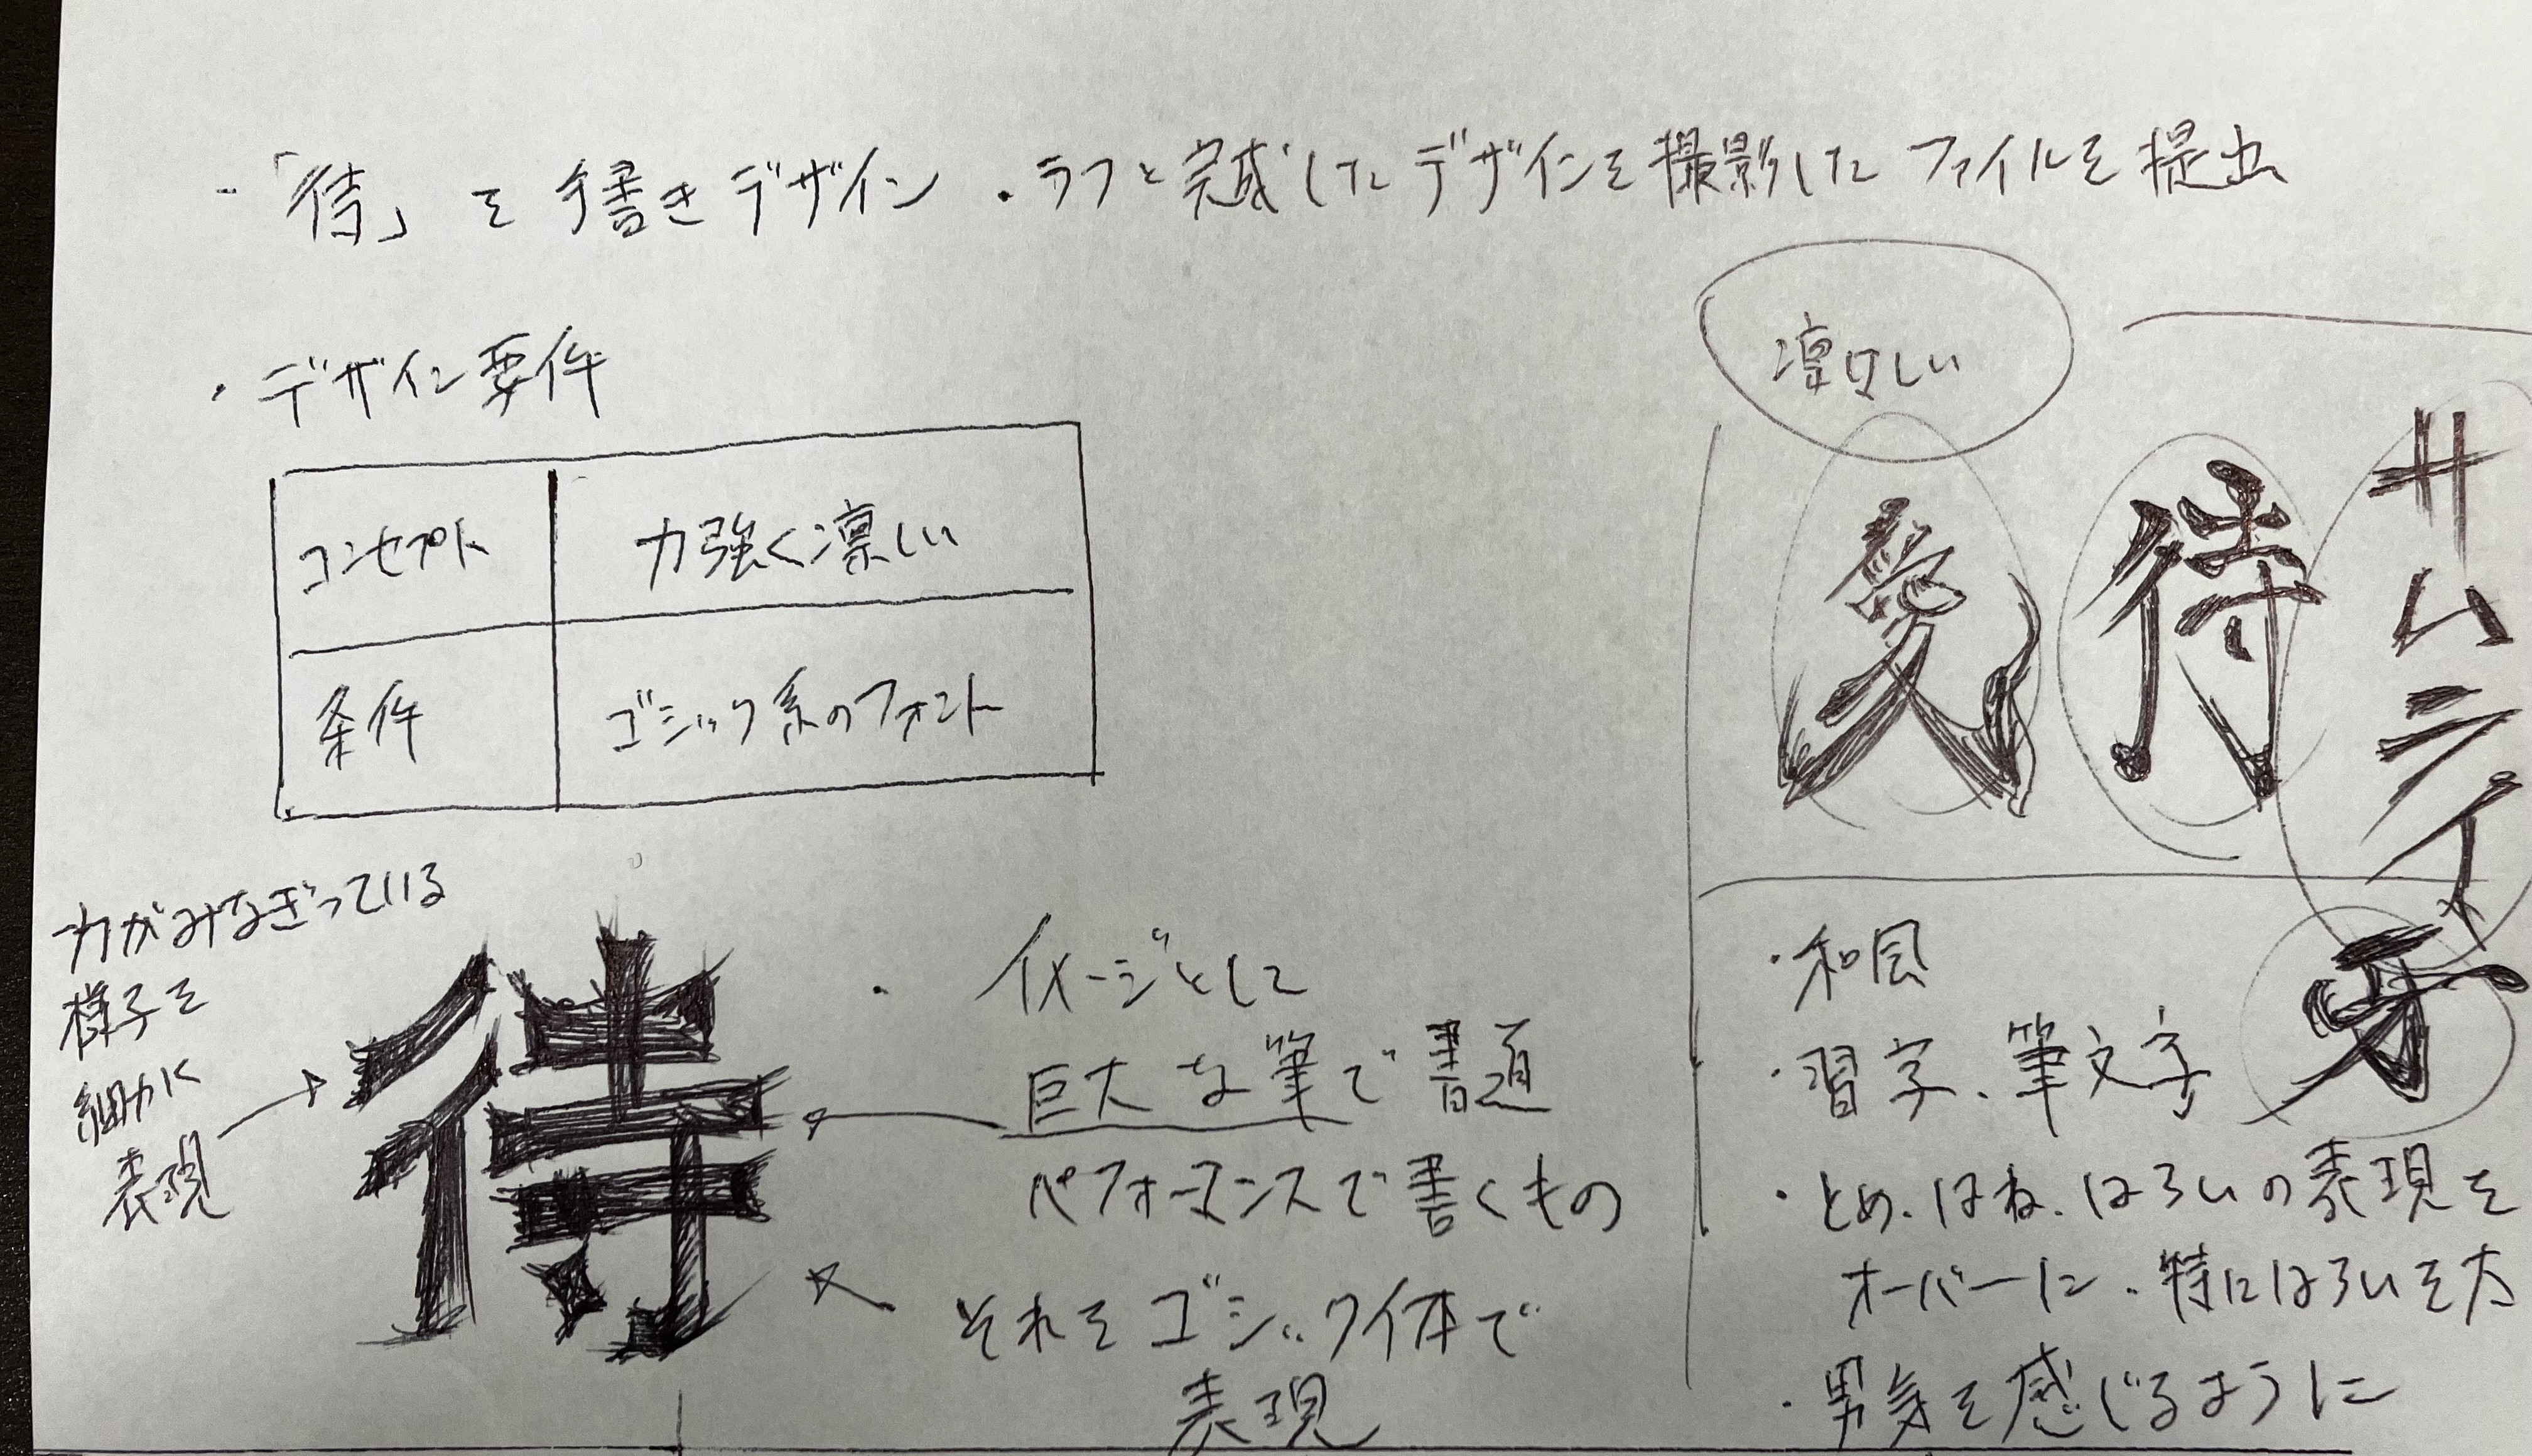 ・「待」を手書きデザイン ・ラフと完成したデザインを撮影したファイルを提出
・デザイン要件
コンセプト 力強く凛しい
条件 ゴシック系のフォント
力がみなぎっている
様子を
細かく
表現
待
・イメージとして
巨大な筆で書道
パフォーマンスで書くもの
それをゴシック体で
表現
凛々しい
愛
待
サムライ
才
・和風
・習字、筆文字
・とめ、はね、はらいの表現を
オーバーに、特にはらいを大
・男気を感じるように